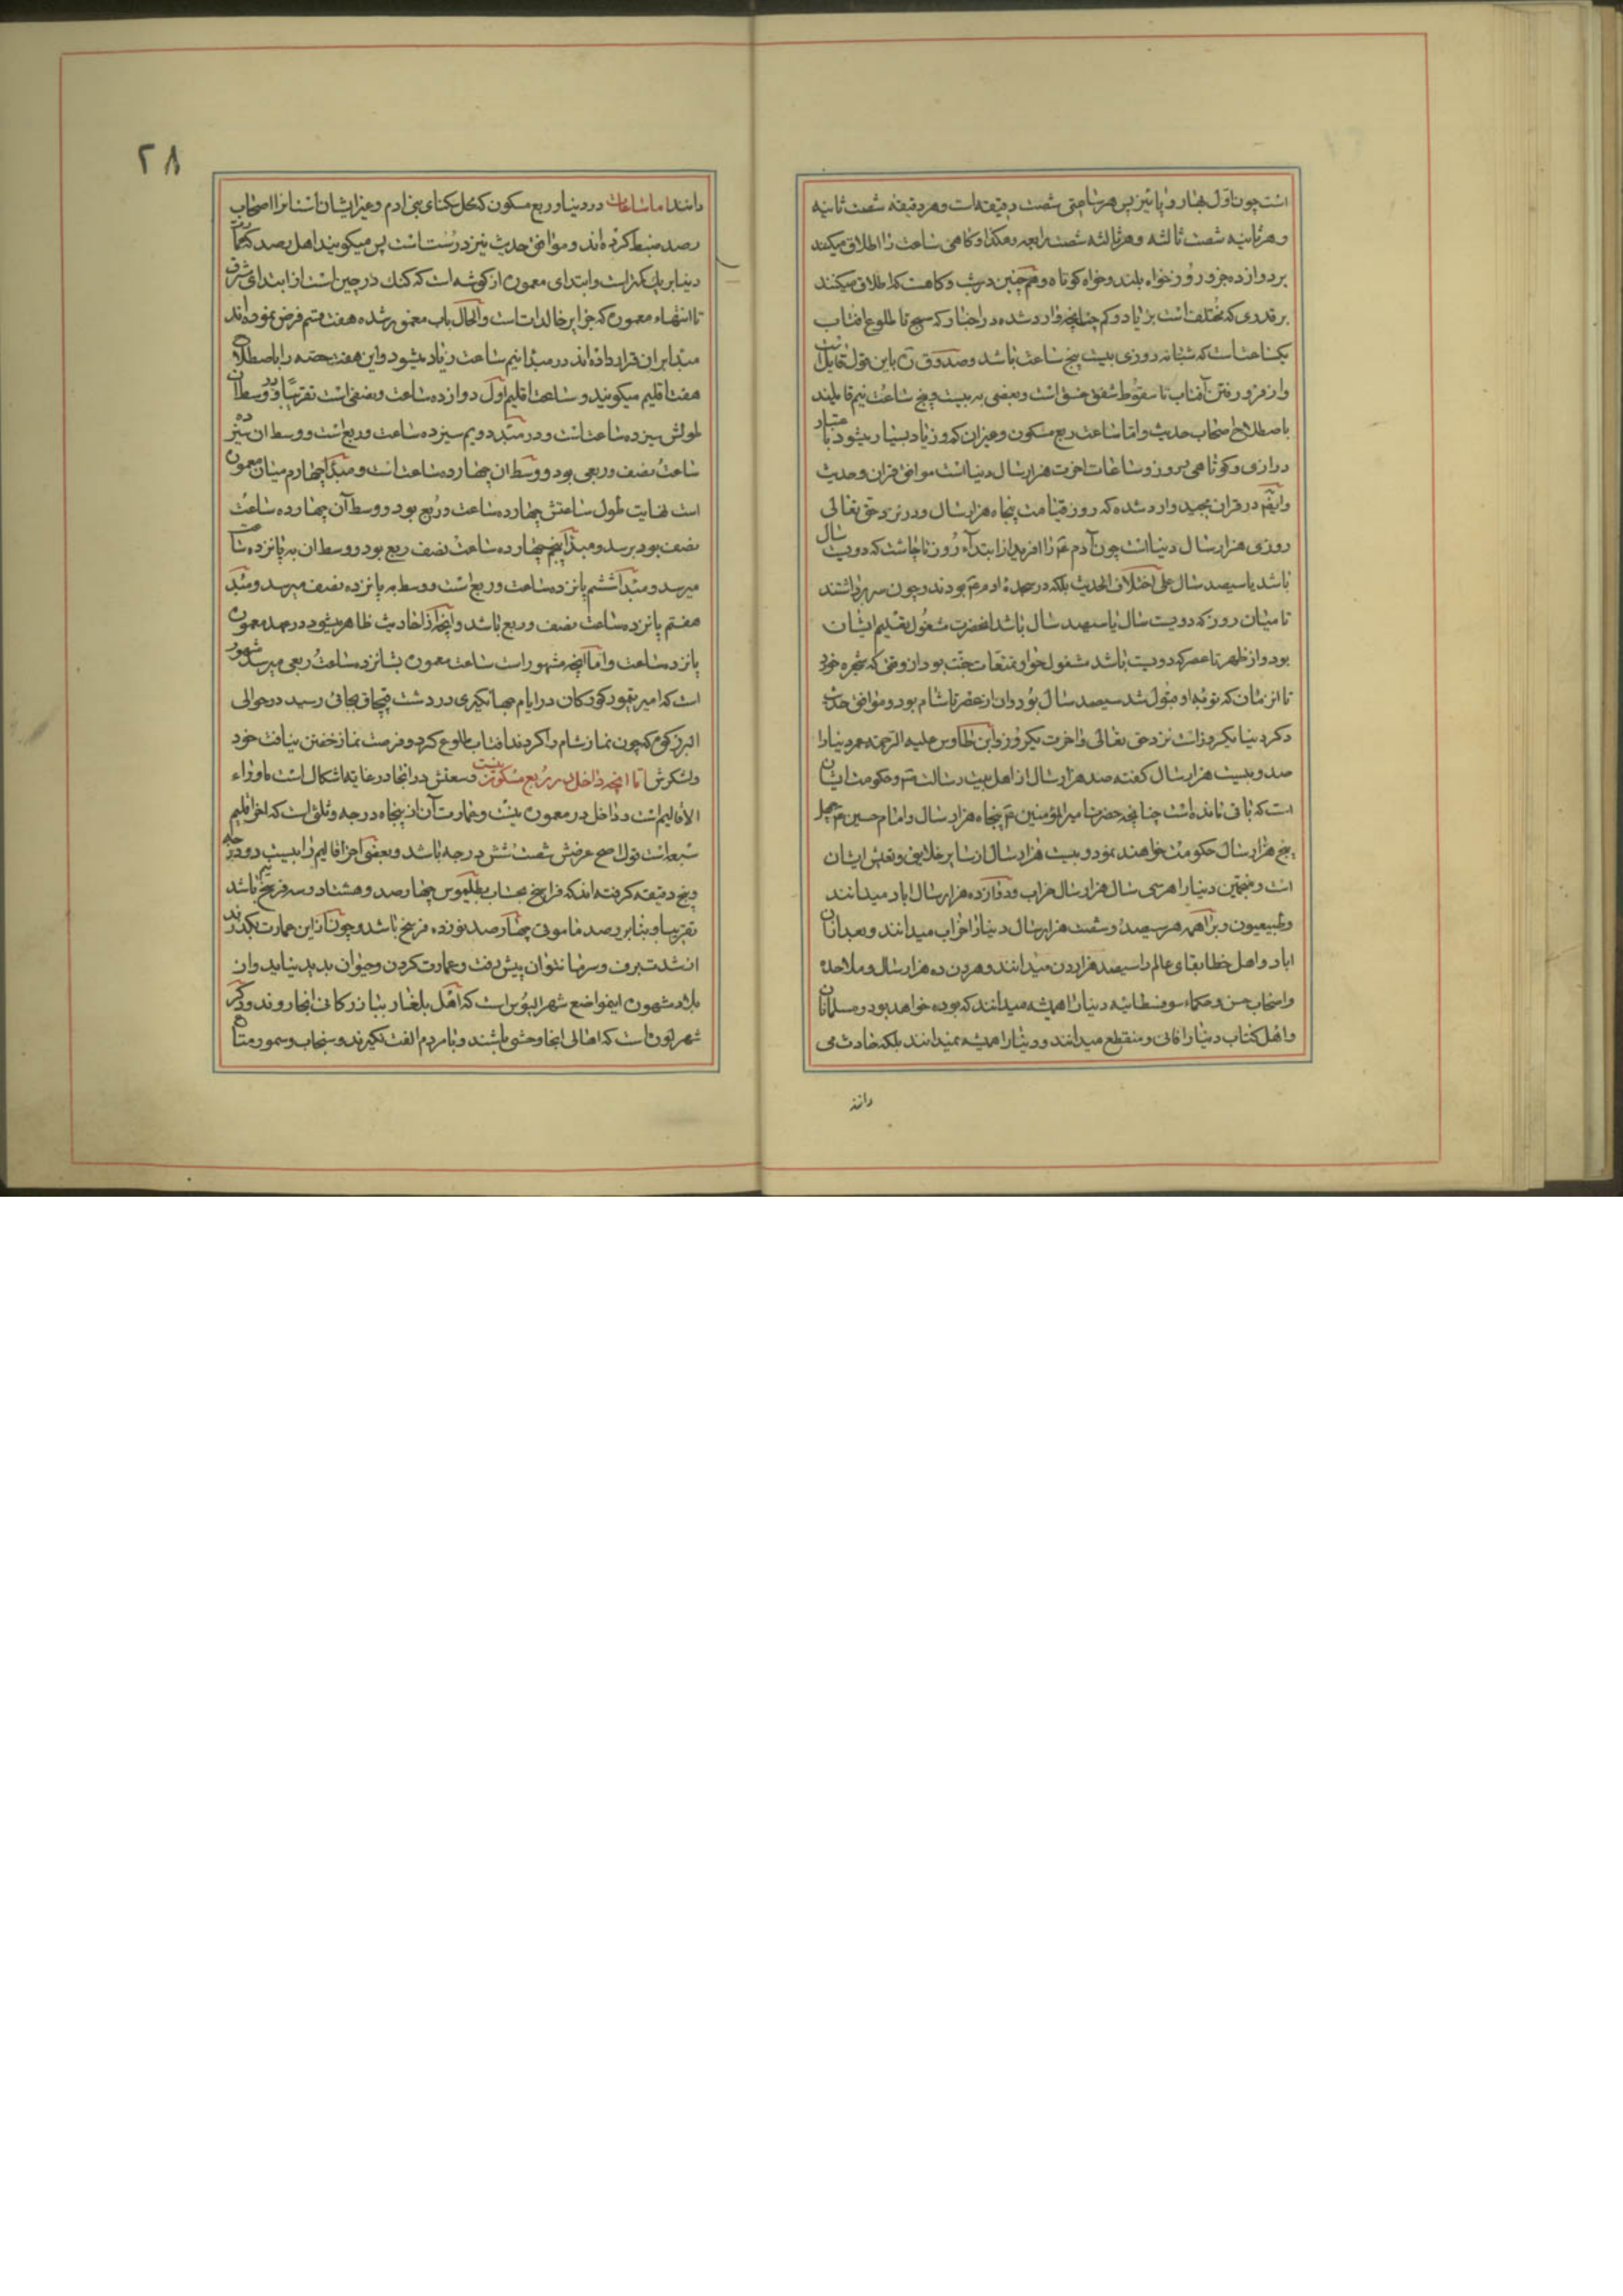 است چون اول بهار و پائیز پس هر ساعتی شصت دقیقه است و هر دقیقه شصت ثانیه
و هر ثانیه شصت ثالثه و هر ثالثه شصت رابعه و هکذا و کاهی ساعت را اطلاق میکنند
بر دوازده جزو روز خواه بلند و خواه کوتاه و همچنین در شب و کاهست که اطلاق میکنند
بر قدری که مختلف است بزیاد و کم چنانچه وارد شده در اخبار که صبح تا طلوع افتاب
یکساعتست که شبانه روزی بیست پنج ساعت باشد و صدوق ره باین قول قایل است
و از فرو رفتن آفتاب تا سقوط شفق غسق است و بعضی به بیست و پنج ساعت نیم قایلند
باصطلاح اصحاب حدیث و اما ساعت ربع مسکون و غیر ان که و زیاد بسیار میشود باعتبار
درازی و کوتاهی روز و ساعات اخرت هزار سال دنیا است موافق قران و حدیث
وایضّم در قران مجید وارد شده که روز قیامت پنجاه هزار سال و در نزد حق تعالی
روزی هزار سال دنیا است چون آدم ع را افرید از ابتداء روز تا چاشت که دویست سال
باشد یا سیصد سال علی اختلاف الحدیث بلکه در سجده ادم ع بودند و چون سر برداشتند
تا میان روز که دویست سال یا سیصد سال باشد انحضرت مشغول تعلیم ایشان
بود و از ظهر تا عصر که دویست باشد مشغول حوا و تمتعات جنت بود از وقتی که شجره خورد
تا از زمان که توبه او قبول شد سیصد سال بود و ان از عصر تا شام بود و موافق حدیث
دکر دنیا یکروز است نزد حق تعالی و اخرت یکروز و ابن طاوس علیه الرحمه عمر دنیا را
صد و بیست هزار سال کفته صد هزار سال از اهل بیت رسالت ع و حکومت ایشان
است که باقی مانده است چنانچه حضرت امیر المؤمنین ع پنجاه هزار سال و امام حسین ع چهل
پنج هزار سال حکومت خواهند نمود و بیست هزار سال از سایر خلایق و تعیش ایشان
است و منجمین دنیا را هر سی سال هزار سال خراب و دوازده هزار سال اباد میدانند
و طبیعیون و براهمه هر سیصد و شصت هزار سال دنیا را خراب میدانند و بعد از ان
اباد و اهل خطا بقای عالم را سیصد هزار دن میدانند و هر دن ده هزار سال و ملاحده
و اصحاب و حکماء سوفسطائیه دنیا را همیشه میدانند که بوده خواهد بود و مسلمانان
و اهل کتاب دنیا را فانی و منقطع میدانند و دنیا را همیشه نمیدانند بلکه حادث می
دانند
٢٨
دانند اما ساعات در دنیا و ربع مسکون که محل سکنای بنی ادم و غیر ایشان است انرا اصحاب
رصد ضبط کرده اند و موافق حدیث نیز درست است پس میکویند اهل رصد که معمو
دنیا بر یک کنار است و ابتدای معموره از کوشه است که کنک در چین است از ابتدای شرق
تا انتهاء معموره که جزایر خالدات است و الحال باب مغمور شده هفت قسم فرض نموده اند
مبدا بر ان قرار داده اند در مبدا نیم ساعت زیاد میشود و این هفت حصه را باصطلاح
هفت اقلیم میکویند و ساعت اقلیم اول دوازده ساعت و نصفی است تقریبًا و وسط ان
طولش سیزده ساعت است و در مبدء دویم سیزده ساعت و ربع است و وسط ان سیزده
ساعت نصف و ربعی بود و وسط ان چهارده ساعت است و مبدا چهارم میان معموره
است نهایت طول ساعتش چهارده ساعت و ربع بود و وسط آن چهارده ساعت
نصف بود برسد و مبدا پنجم چهارده ساعت نصف ربع بود و وسط ان به پانزده ساعت
میرسد و مبدا ششم پانزده ساعت و ربع است و وسط به پانزده نصف میرسد و مبدا
هفتم پانزده ساعت نصف و ربع باشد و انچه از احادیث ظاهر میشود در معموره
پانزده ساعت و اما انچه مشهور است ساعت معموره بشانزده ساعت ربعی میرسد مشهور
است که امیر تیمور کورکان در ایام جهانکیری در دشت قپچاق بجائی رسید در حوالی
البرز کوه که چون نماز شام را کردند افتاب طلوع کرد و فرصت نماز خفتن نیافت خود
و لشکرش اما انچه داخل در ربع مسکون نیست وسعتش در انجا در غایة اشکال است ماوراء
الاقالیم است و داخل در معموره نیست و عمارت آن از پنجاه درجه و ثلثی است که اخر اقلیم
سبعه است قول اصح عرضش شصت شش درجه باشد و بعضی اخر اقالیم را بیست و درجه
و پنج دقیقه کرفته اند که فراسخ بحساب بطلمیوس چهار صد و هشتاد و سه فرسخ باشد
تقریبا و بنا بر رصد مامونی چهار صد نوزده فرسخ باشد و چون از این عمارت بکذرند
از شدت برف و سرما نتوان پیش رفت و عمارت کردن و حیوان پدید نیاید و از
بلاد مشهوره این مواضع شهر ایبوس است که اهل بلغار ببازرکانی انجا روند و دکر
شهر است که اهالی انجا وحشی باشند و با مردم الفت نکیرند و سنجاب و سمور متاع